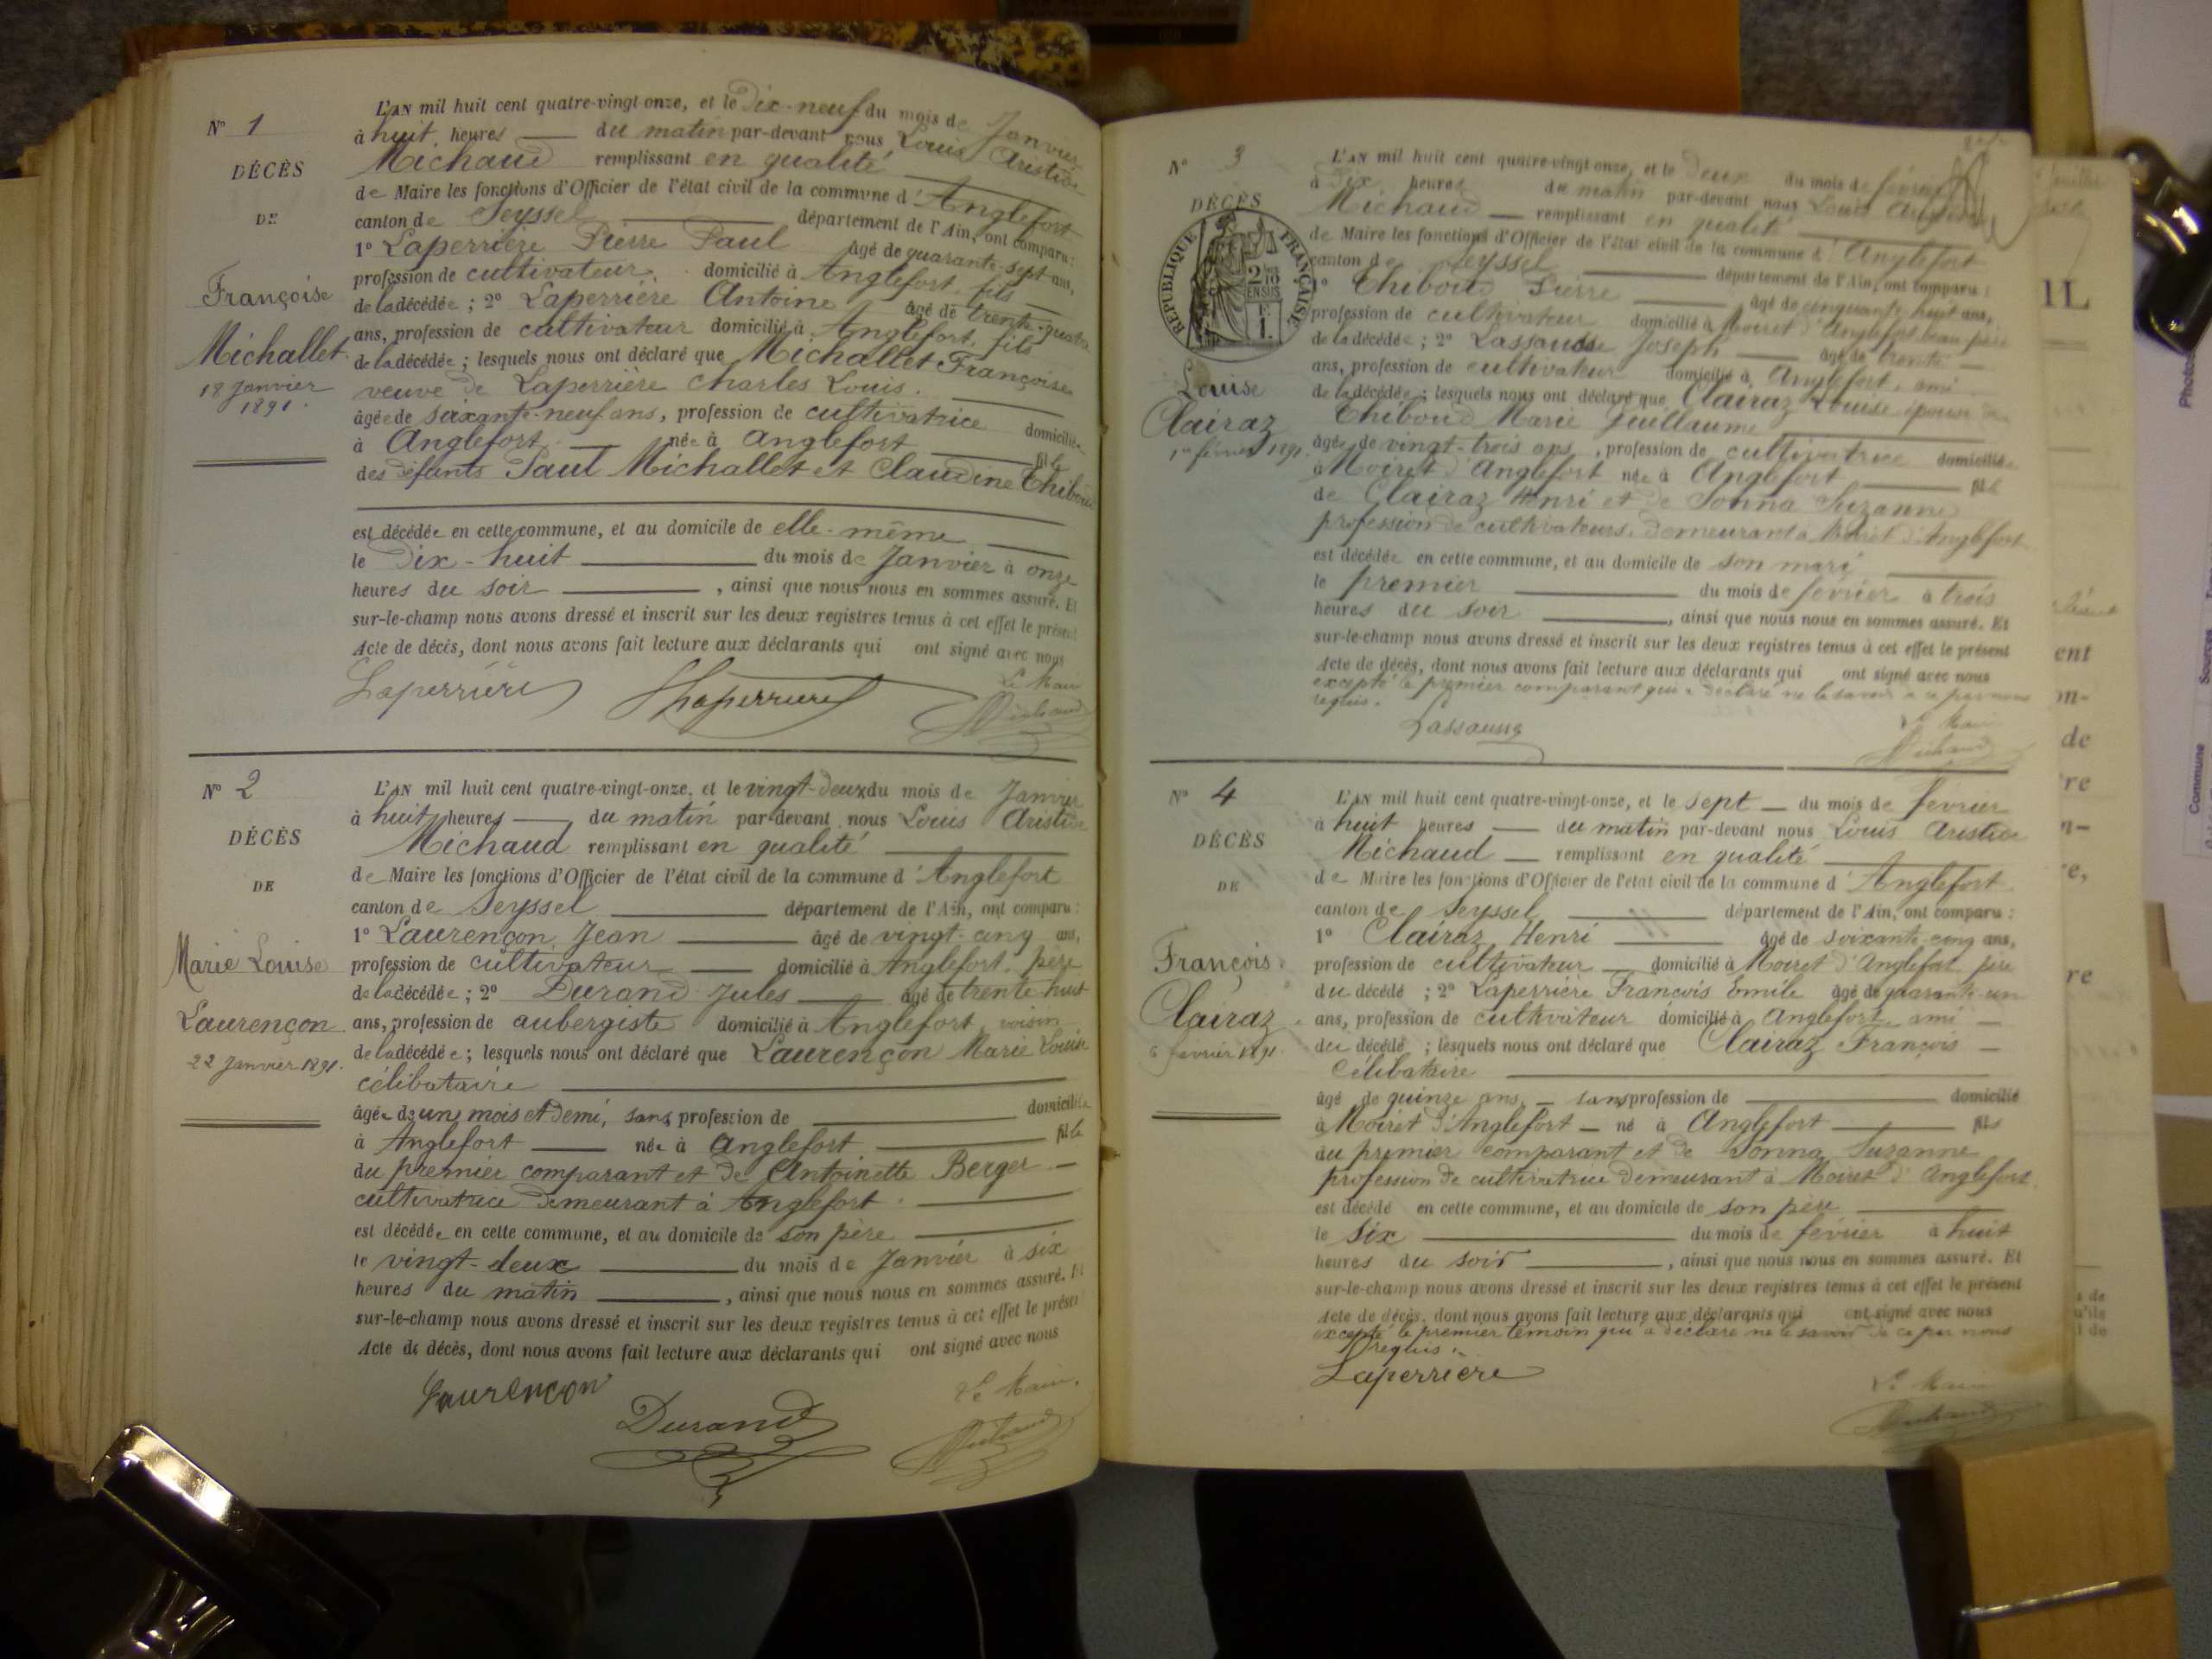 N° 1
DÉCÈS
DE
Françoise
Michallet
18 Janvier
1891.
L'AN mil huit cent quatre-vingt-onze, et le Dix-neuf du mois de Janvier
à huit heures du matin par-devant nous Louis Aristide
Michaud remplissant en qualité
de Maire les fonctions d'Officier de l'état civil de la commune d'Anglefort
canton de Seyssel département de l'Ain, ont comparu :
1° Laperrière Pierre Paul âgé de quarante-sept ans,
profession de cultivateur domicilié à Anglefort, fils
de la décédée ; 2° Laperrière Antoine âgé de trente-quatre
ans, profession de cultivateur domicilié à Anglefort, fils
de la décédée ; lesquels nous ont déclaré que Michallet Françoise
veuve de Laperrière Charles Louis.
âgée de soixante-neuf ans, profession de cultivatrice domiciliée
à Anglefort née à Anglefort fille
des défunts Paul Michallet et Claudine Thiboud
est décédée en cette commune, et au domicile de elle-même
le Dix-huit du mois de Janvier à onze
heures du soir, ainsi que nous nous en sommes assuré. Et
sur-le-champ nous avons dressé et inscrit sur les deux registres tenus à cet effet le présent
Acte de décès, dont nous avons fait lecture aux déclarants qui ont signé avec nous
Le Maire
Laperrière Laperriere Michaud
N° 2
DÉCÈS
DE
Marie Louise
Laurençon
22 Janvier 1891.
L'AN mil huit cent quatre-vingt-onze, et le vingt-deux du mois de Janvier
à huit heures du matin par-devant nous Louis Aristide
Michaud remplissant en qualité
de Maire les fonctions d'Officier de l'état civil de la commune d'Anglefort
canton de Seyssel département de l'Ain, ont comparu :
1° Laurençon Jean âgé de vingt-cinq ans,
profession de cultivateur domicilié à Anglefort, père
de la décédée ; 2° Durand Jules âgé de trente huit
ans, profession de aubergiste domicilié à Anglefort, voisin
de la décédée ; lesquels nous ont déclaré que Laurençon Marie Louise
célibataire
âgée de un mois et demi, sans profession de domiciliée
à Anglefort née à Anglefort fille
du premier comparant et de Antoinette Berger
cultivatrice demeurant à Anglefort.
est décédée en cette commune, et au domicile de son père
le vingt-deux du mois de Janvier à six
heures du matin, ainsi que nous nous en sommes assuré. Et
sur-le-champ nous avons dressé et inscrit sur les deux registres tenus à cet effet le présent
Acte de décès, dont nous avons fait lecture aux déclarants qui ont signé avec nous
Laurençon
Durand
Le Maire,
Michaud
N° 3
DÉCÈS
RÉPUBLIQUE FRANÇAISE
2/10
EN SUS
Louise
Clairaz
1er février 1891.
L'AN mil huit cent quatre-vingt-onze, et le Deux du mois de février
à Dix heures du matin par-devant nous Louis Aristide
Michaud remplissant en qualité
de Maire les fonctions d'Officier de l'état civil de la commune d'Anglefort
canton de Seyssel département de l'Ain, ont comparu :
1° Thiboud Pierre âgé de cinquante huit ans,
profession de cultivateur domicilié à Moiret d'Anglefort beau père
de la décédée ; 2° Lassausse Joseph âgé de trente
ans, profession de cultivateur domicilié à Anglefort, ami
de la décédée ; lesquels nous ont déclaré que Clairaz Louise épouse de
Thiboud Marie Guillaume
âgée de vingt-trois ans, profession de cultivatrice domiciliée
à Moiret d'Anglefort née à Anglefort fille
de Clairaz Henri et de Sonna Suzanne
profession de cultivateurs, demeurant à Moiret d'Anglefort
est décédée en cette commune, et au domicile de son mari
le premier du mois de février à trois
heures du soir, ainsi que nous nous en sommes assuré. Et
sur-le-champ nous avons dressé et inscrit sur les deux registres tenus à cet effet le présent
Acte de décès, dont nous avons fait lecture aux déclarants qui ont signé avec nous
excepté le premier comparant qui a déclaré ne le savoir de ce par nous
requis.
Lassausse
Le Maire
Michaud
N° 4
DÉCÈS
DE
François
Clairaz
6 février 1891.
L'AN mil huit cent quatre-vingt-onze, et le sept du mois de février
à huit heures du matin par-devant nous Louis Aristide
Michaud remplissant en qualité
de Maire les fonctions d'Officier de l'état civil de la commune d'Anglefort
canton de Seyssel département de l'Ain, ont comparu :
1° Clairaz Henri âgé de soixante-cinq ans,
profession de cultivateur domicilié à Moiret d'Anglefort, père
du décédé ; 2° Laperrière François Emile âgé de quarante-un
ans, profession de cultivateur domicilié à Anglefort, ami
du décédé ; lesquels nous ont déclaré que Clairaz François
célibataire
âgé de quinze ans, sans profession de domicilié
à Moiret d'Anglefort né à Anglefort fils
du premier comparant et de Sonna Suzanne
profession de cultivatrice demeurant à Moiret d'Anglefort.
est décédé en cette commune, et au domicile de son père
le six du mois de février à huit
heures du soir, ainsi que nous nous en sommes assuré. Et
sur-le-champ nous avons dressé et inscrit sur les deux registres tenus à cet effet le présent
Acte de décès, dont nous avons fait lecture aux déclarants qui ont signé avec nous
excepté le premier témoin qui a déclaré ne le savoir de ce par nous
requis.
Laperriere
Le Maire
Michaud